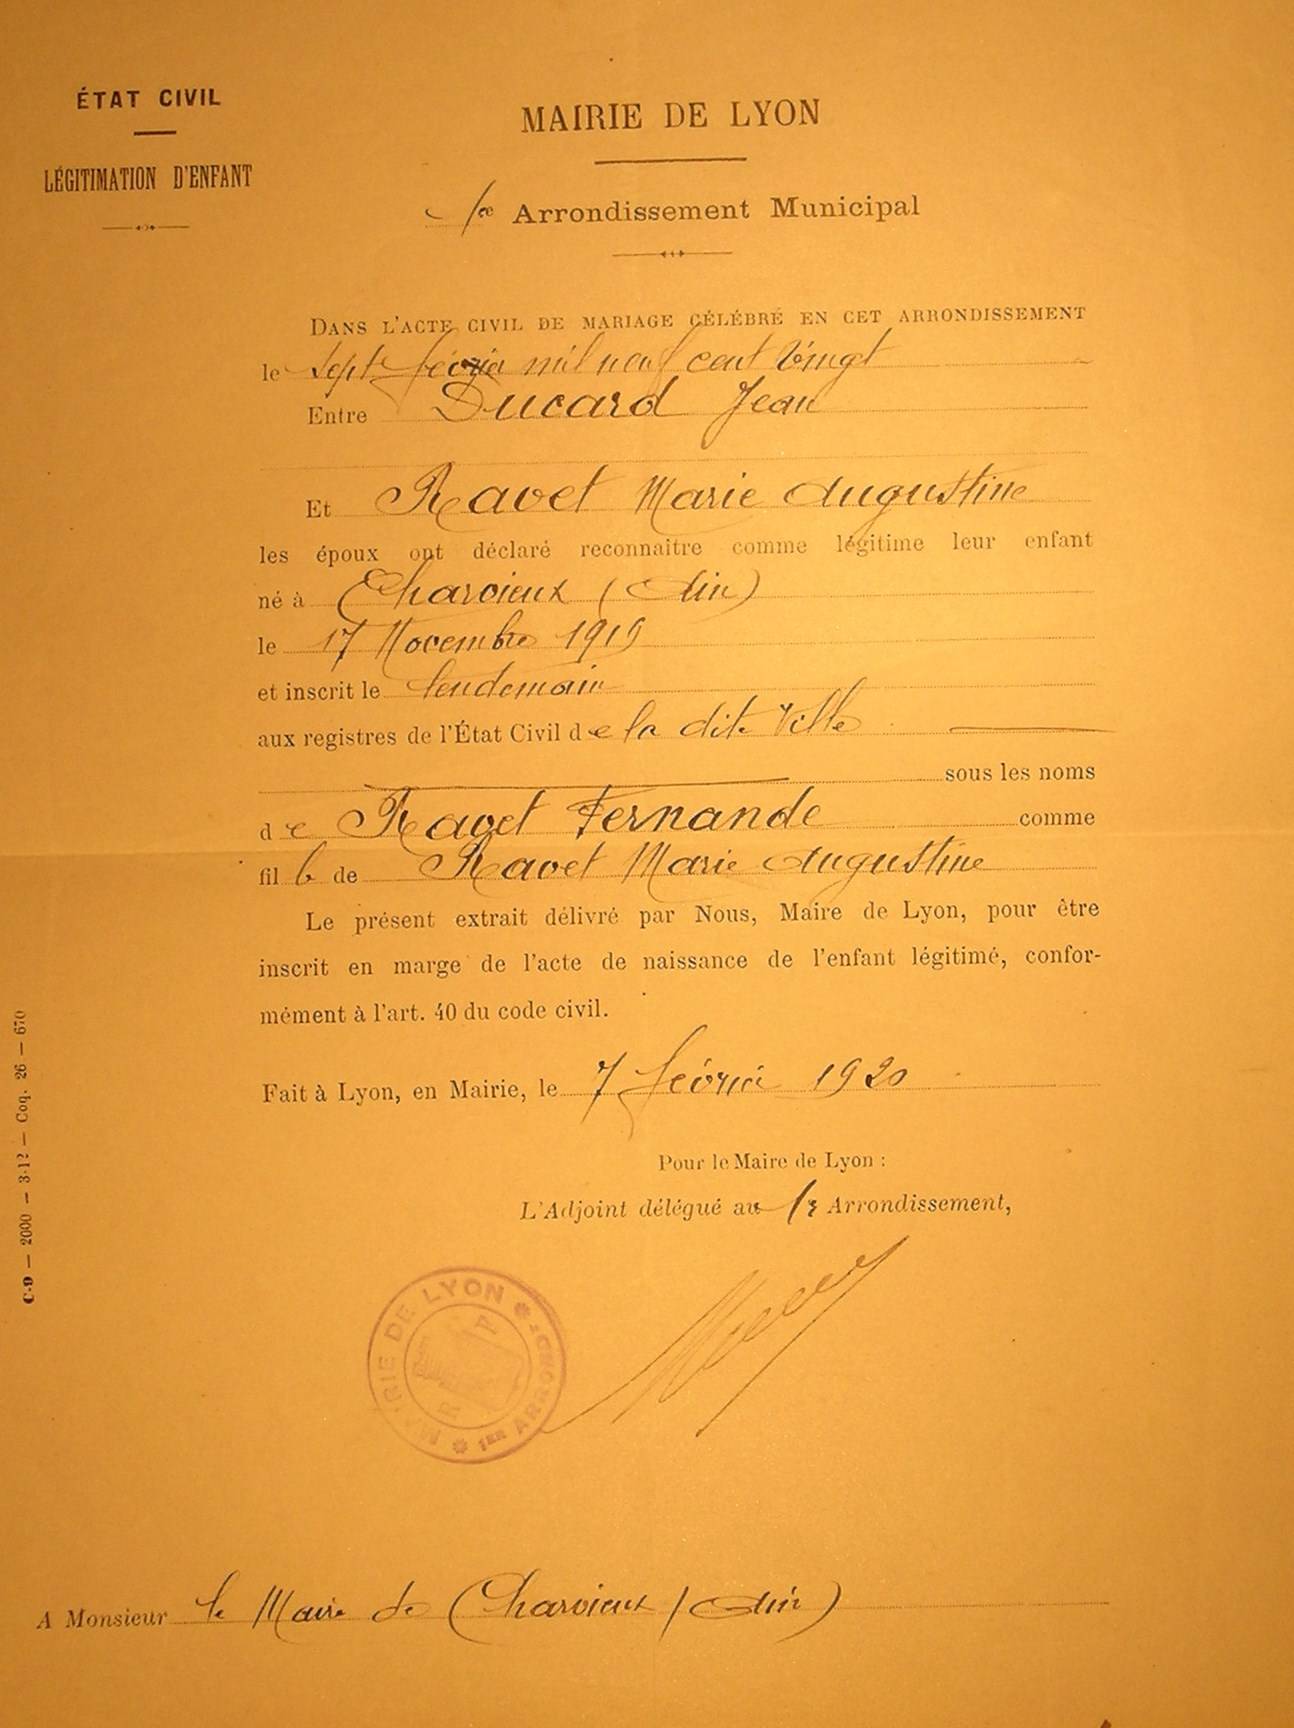 ÉTAT CIVIL
LÉGITIMATION D'ENFANT
MAIRIE DE LYON
1er Arrondissement Municipal
DANS L'ACTE CIVIL DE MARIAGE CÉLÉBRÉ EN CET ARRONDISSEMENT
le sept février mil neuf cent vingt
Entre Ducard Jean
Et Ravet Marie Augustine
les époux ont déclaré reconnaitre comme légitime leur enfant
né à Charvieux (Ain)
le 17 Novembre 1919
et inscrit le lendemain
aux registres de l'État Civil de la dite Ville
sous les noms
de Ravet Fernande comme
fil de Ravet Marie Augustine
Le présent extrait délivré par Nous, Maire de Lyon, pour être
inscrit en marge de l'acte de naissance de l'enfant légitimé, confor-
mément à l'art. 40 du code civil.
Fait à Lyon, en Mairie, le 7 février 1920
Pour le Maire de Lyon :
L'Adjoint délégué au 1er Arrondissement,
MAIRIE DE LYON * 1ER ARROND^T *
R F
A Monsieur le Maire de Charvieux (Ain)
C-9 — 2000 — 3-12 — Coq. 26 — 670